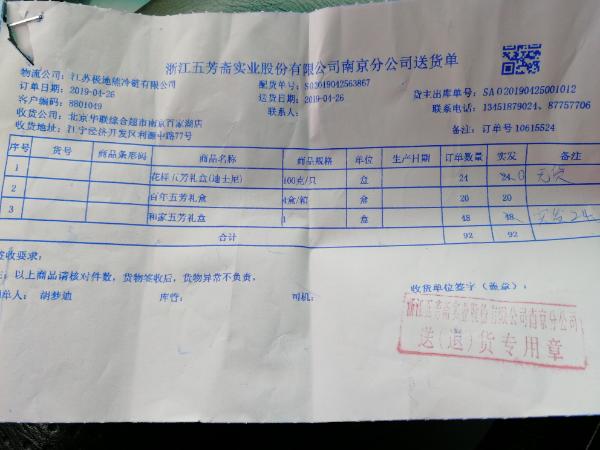 浙江五芳斋实业股份有限公司南京分公司送货单
物流公司：江苏极地熊冷链有限公司
订单日期：2019-04-26
客户编码：8801049
收货公司：北京华联综合超市南京百家湖店
收货地址：江宁经济开发区利源中路77号
配货单号：SO2019042563867
送货日期：2019-04-26
联系人：
货主出库单号：SAO20190425001012
联系电话：13451879024、87757706
备注：订单号10615524
序号 货号 商品条形码 商品名称 商品规格 单位 生产日期 订单数量 实发 备注
1 花样五芳礼盒(迪士尼) 100克/只 盒 24 24 0
2 百年五芳礼盒 4盒/箱 盒 20 20
3 和家五芳礼盒 1 盒 48 48
合计 92 92
签收要求：
注：以上商品请核对件数，货物签收后，货物异常不负责。
制单人：胡梦迪 库管： 司机： 收货单位签字（盖章）：
浙江五芳斋实业股份有限公司南京分公司
送(退)货专用章